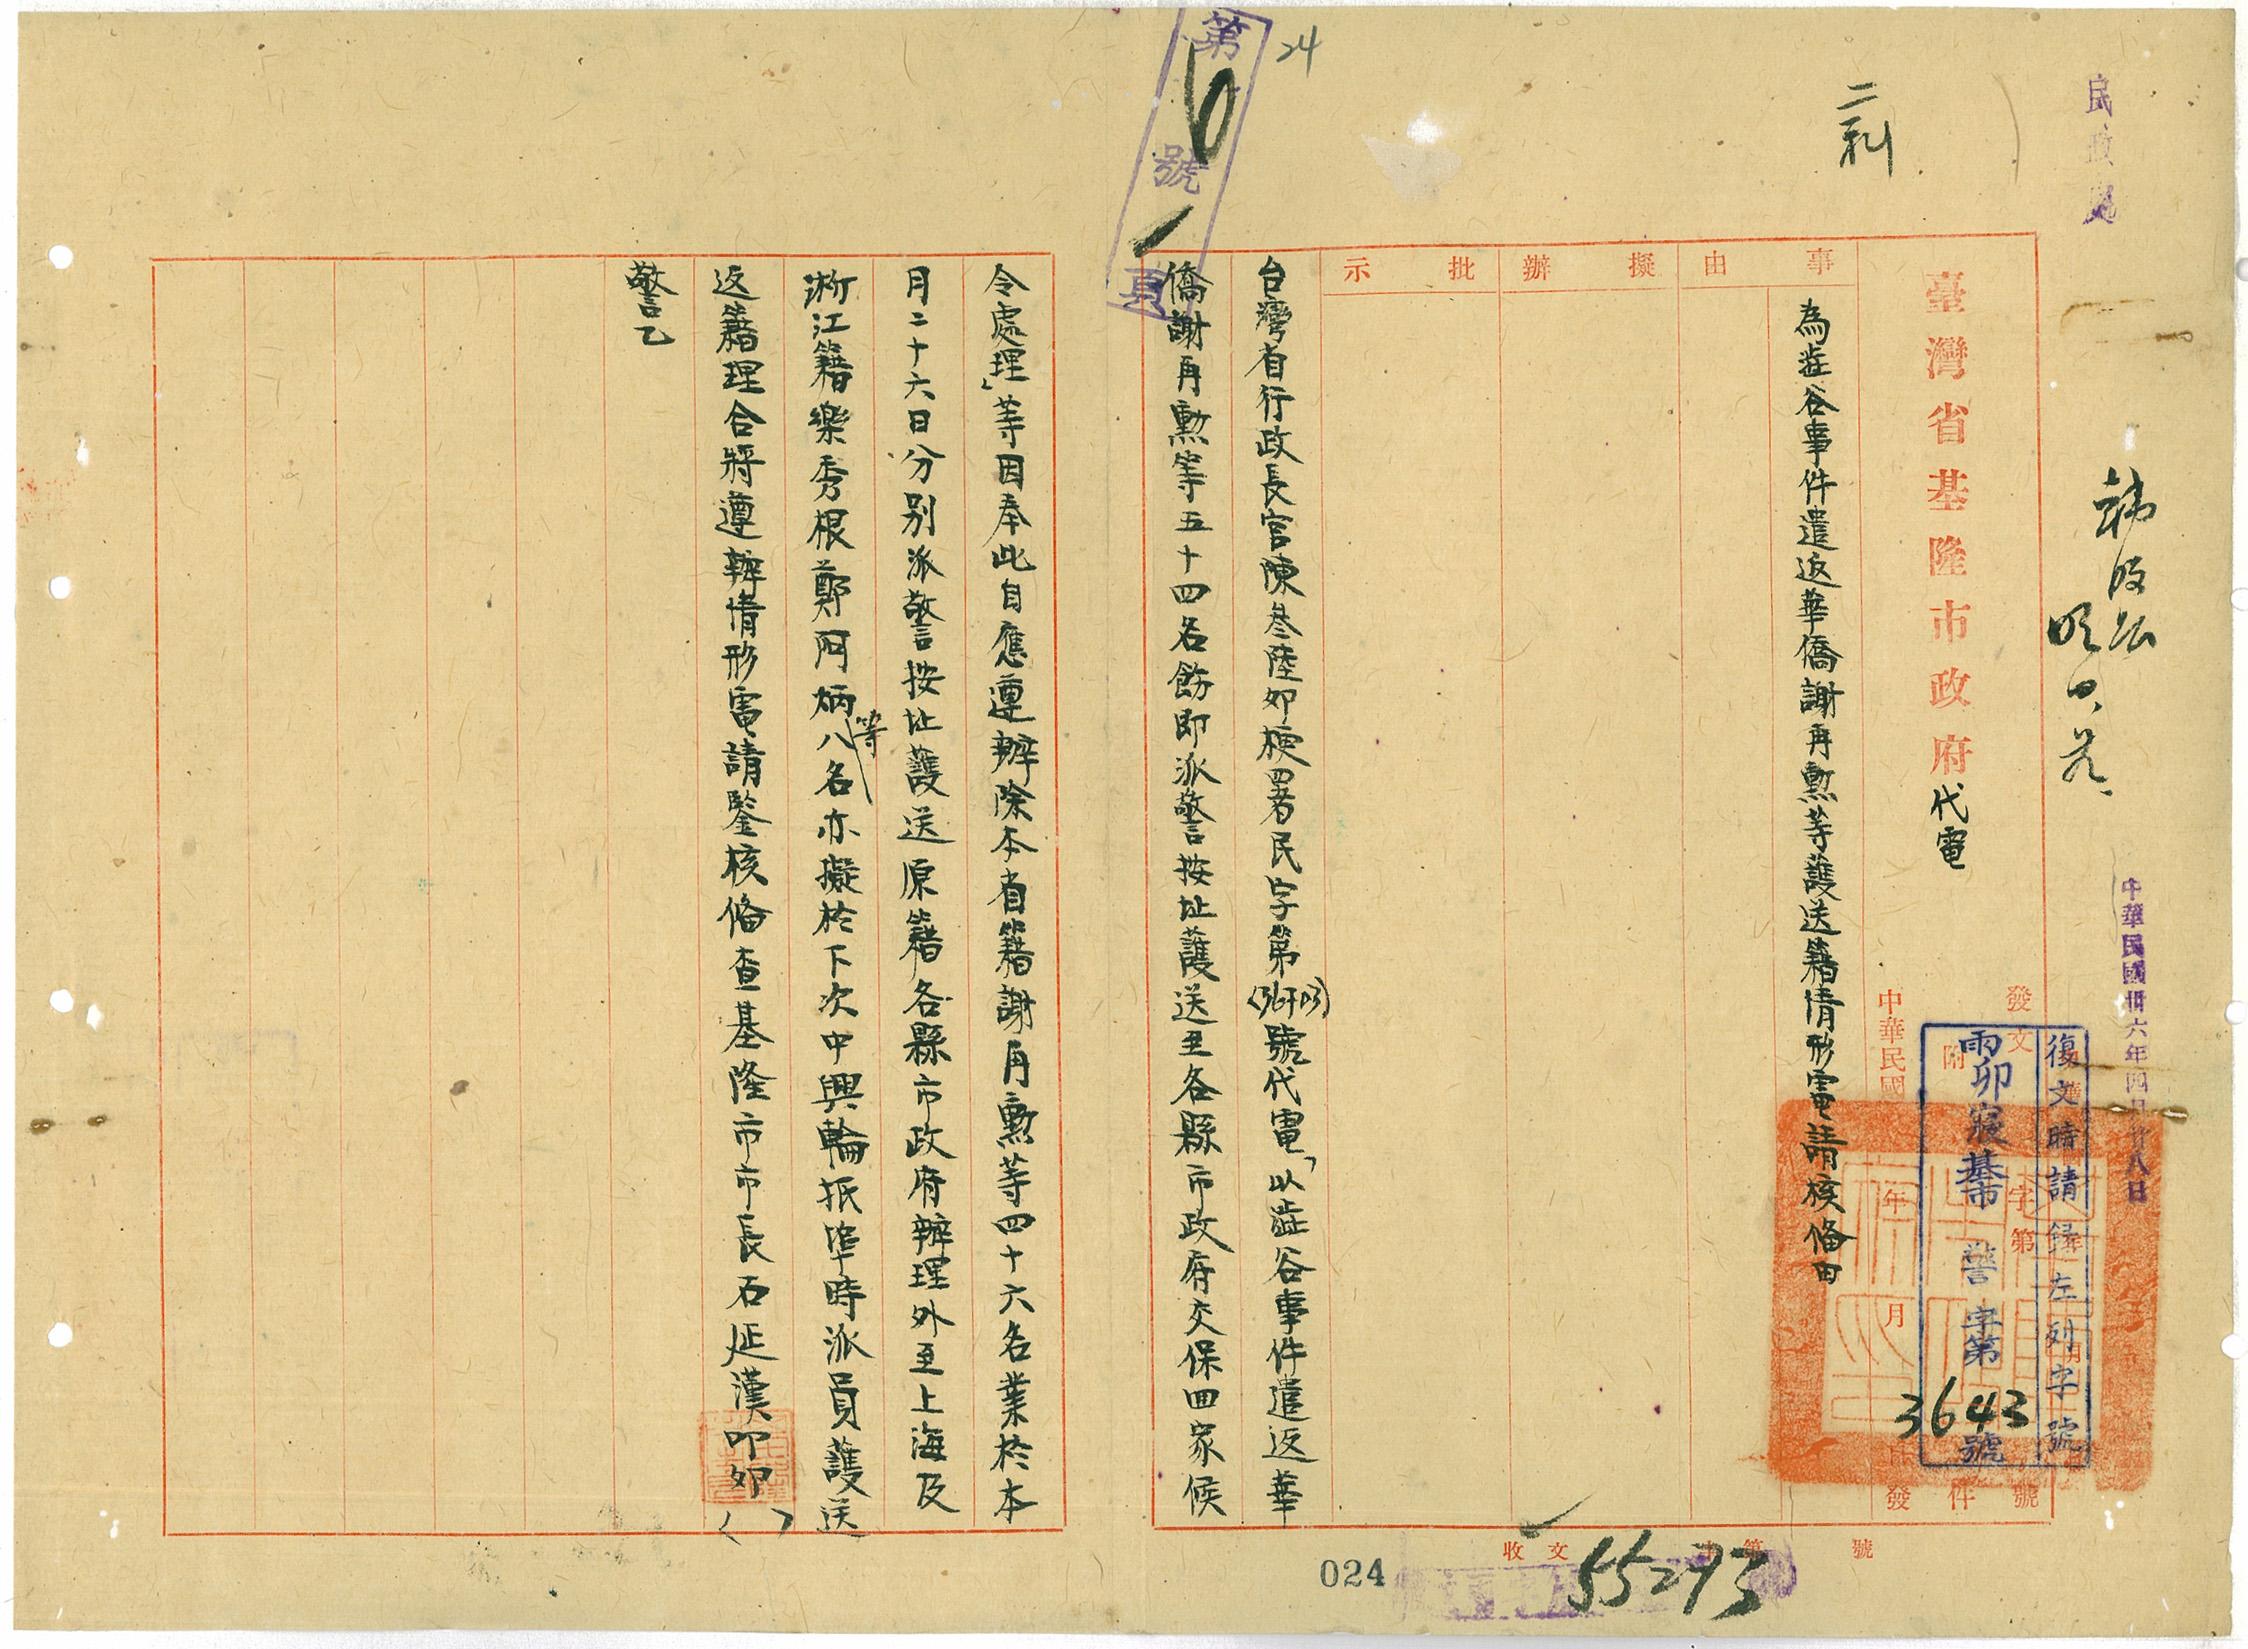 民政處
中華民國卅六年四月廿八日
復文時請錄左列字號
雨卯寢基市 警字第3643號
發文 字第 號
附 件
中華民國 年 月 日發
臺灣省基隆市政府代電
事由
為澁谷事件遣返華僑謝再勳等護送籍情形電請核備由
擬辦
批示
台灣省行政長官陳叁陸卯梗署民字第 號代電「以澁谷事件遣返華
僑謝再勳等五十四名飭即派警按址護送至各縣市政府交保回家候
令處理」等因奉此自應遵辦除本省籍謝再勳等四十六名業於本
月二十六日分別派警按址護送原籍各縣市政府辦理外至上海及
浙江籍樂秀根鄭阿炳等八名亦擬於下次中興輪抵埠時派員護送
返籍理合將遵辦情形電請鑒核俻查基隆市市長石延漢叩卯( )
警乙
第6號1頁
24
收文 字第 號
55273
024